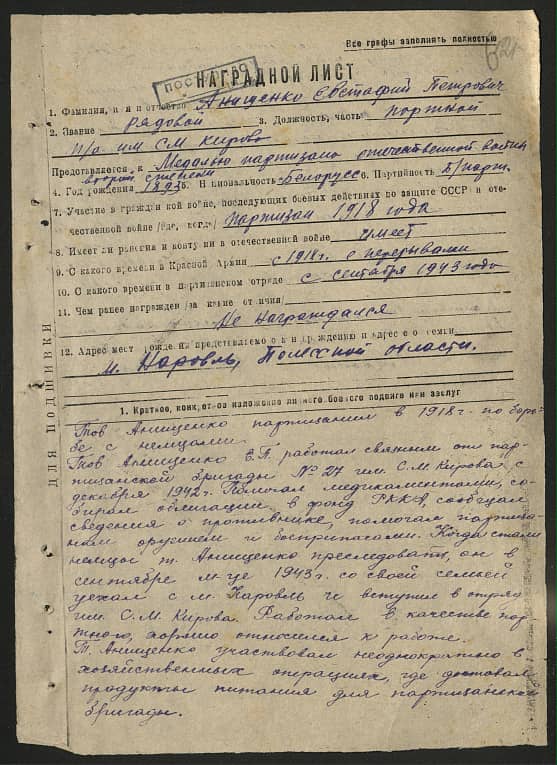 Все графы заполнять полностью
62
НАГРАДНОЙ ЛИСТ
1. Фамилия, имя и отчество Анищенко Евстафий Петрович
2. Звание рядовой 3. Должность, часть портной
п/о им. С М Кирова
Представляется к Медалью партизана отечественной войны
второй степени
4. Год рождения 1893 5. Национальность Белорусс 6. Партийность Б/парт.
7. Участие в гражданской войне, последующих боевых действиях по защите СССР и оте-
чественной войне (где, когда) Партизан 1918 года
8. Имеет ли ранения и контузии в отечественной войне имеет
9. С какого времени в Красной Армии с 1918 г. с перерывами
10. С какого времени в партизанском отряде с сентября 1943 года
11. Чем ранее награжден (за какие отличия)
Не награждался
12. Адрес мест рождения представляемого к награждению и адрес семьи
м. Наровль, Полесской области.
ДЛЯ ПОДШИВКИ
1. Краткое, конкретное изложение личного боевого подвига или заслуг
Тов Анищенко партизанил в 1918 г. по борь-
бе с немцами.
Тов Анищенко Е.П. работал связным от пар-
тизанской бригады № 27 им. С.М. Кирова с
декабря 1942 г. Помогал медикаментами, со-
бирал облигации в фонд РККА, сообщал
сведения о противнике, помогал партиза-
нам оружием и боеприпасами. Когда стали
немцы т. Анищенко преследовать, он в
сентябре м-це 1943 г. со своей семьей
уехал с м. Наровль и вступил в отряд
им. С.М. Кирова. Работал в качестве пор-
тного, хорошо относился к работе.
Т. Анищенко участвовал неоднократно в
хозяйственных операциях, где доставал
продукты питания для партизанской
бригады.